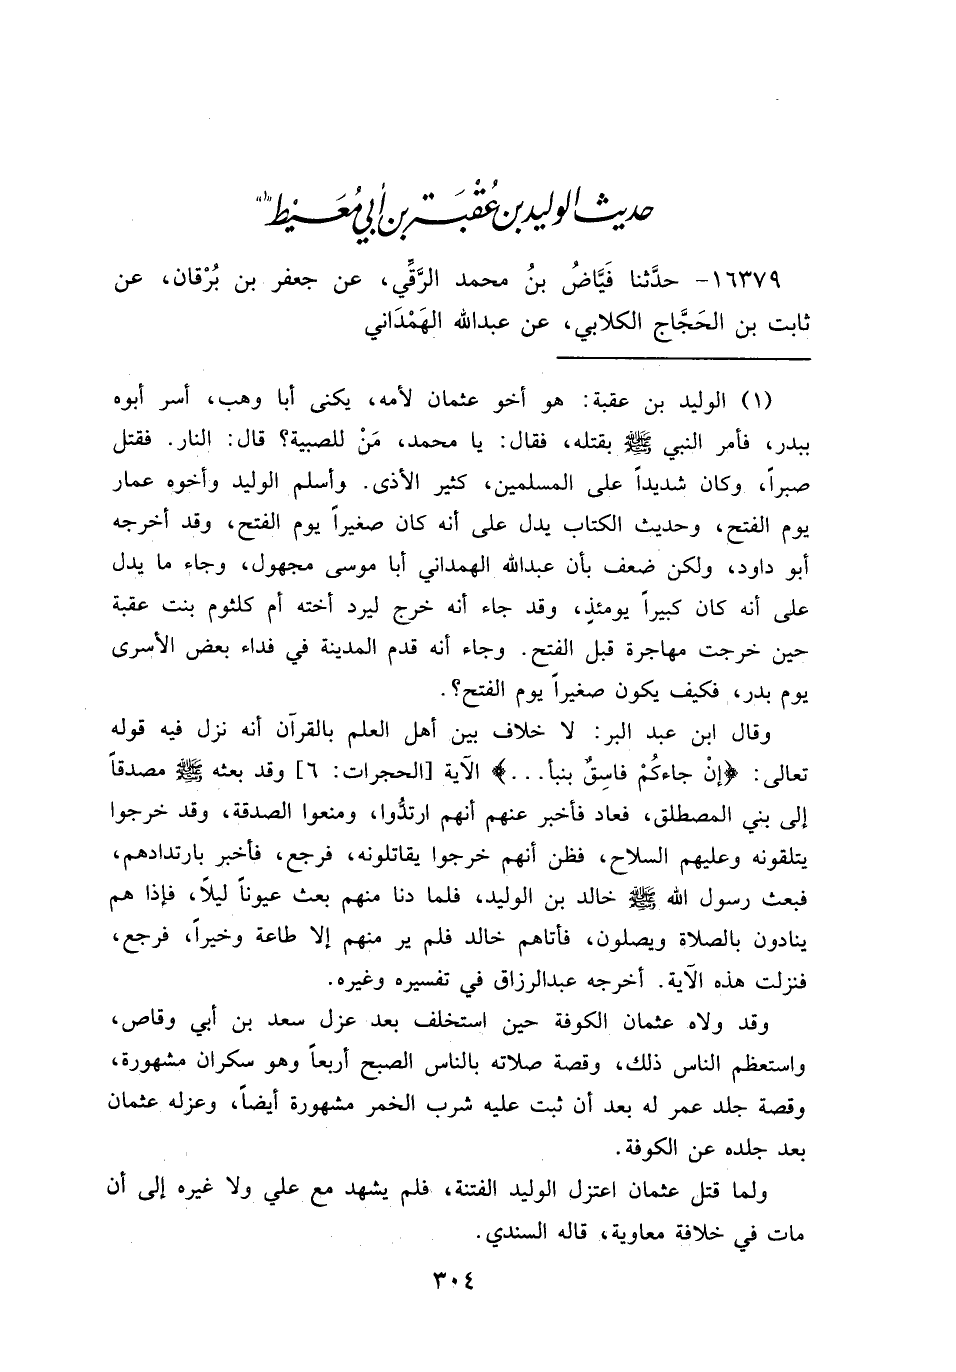 حديث الوليد بن عُقْبَة بن أبي مُعَيط (١)
١٦٣٧٩- حدَّثنا فَيَّاضُ بنُ محمد الرَّقِّي، عن جعفر بن بُرْقان، عن
ثابت بن الحَجَّاج الكلابي، عن عبدالله الهَمْدَاني
(١) الوليد بن عقبة: هو أخو عثمان لأمه، يكنى أبا وهب، أسر أبوه
ببدر، فأمر النبي ﷺ بقتله، فقال: يا محمد، مَنْ للصبية؟ قال: النار. فقتل
صبراً، وكان شديداً على المسلمين، كثير الأذى. وأسلم الوليد وأخوه عمار
يوم الفتح، وحديث الكتاب يدل على أنه كان صغيراً يوم الفتح، وقد أخرجه
أبو داود، ولكن ضعف بأن عبدالله الهمداني أبا موسى مجهول، وجاء ما يدل
على أنه كان كبيراً يومئذٍ، وقد جاء أنه خرج ليرد أخته أم كلثوم بنت عقبة
حين خرجت مهاجرة قبل الفتح. وجاء أنه قدم المدينة في فداء بعض الأسرى
يوم بدر، فكيف يكون صغيراً يوم الفتح؟.
وقال ابن عبد البر: لا خلاف بين أهل العلم بالقرآن أنه نزل فيه قوله
تعالى: ﴿إنْ جاءكُمْ فاسِقٌ بنبأ...﴾ الآية [الحجرات: ٦] وقد بعثه ﷺ مصدقاً
إلى بني المصطلق، فعاد فأخبر عنهم أنهم ارتدُّوا، ومنعوا الصدقة، وقد خرجوا
يتلقونه وعليهم السلاح، فظن أنهم خرجوا يقاتلونه، فرجع، فأخبر بارتدادهم،
فبعث رسول الله ﷺ خالد بن الوليد، فلما دنا منهم بعث عيوناً ليلاً، فإذا هم
ينادون بالصلاة ويصلون، فأتاهم خالد فلم ير منهم إلا طاعة وخيراً، فرجع،
فنزلت هذه الآية. أخرجه عبدالرزاق في تفسيره وغيره.
وقد ولاه عثمان الكوفة حين استخلف بعد عزل سعد بن أبي وقاص،
واستعظم الناس ذلك، وقصة صلاته بالناس الصبح أربعاً وهو سكران مشهورة،
وقصة جلد عمر له بعد أن ثبت عليه شرب الخمر مشهورة أيضاً، وعزله عثمان
بعد جلده عن الكوفة.
ولما قتل عثمان اعتزل الوليد الفتنة، فلم يشهد مع علي ولا غيره إلى أن
مات في خلافة معاوية، قاله السندي.
٣٠٤